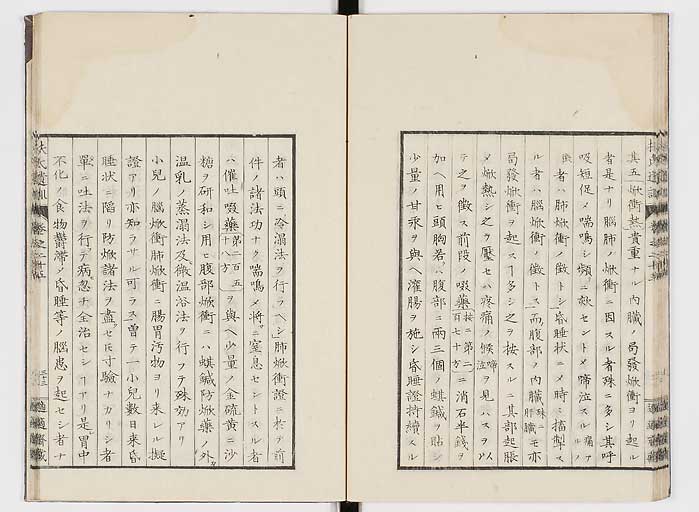 其五焮衝熱貴重ナル内臓ノ局發焮衝ヨリ起ル
者是ナリ腦肺ノ焮衝ニ因スル者殊ニ多シ其呼
吸短促〆喘鳴シ頻ニ欬セント〆啼泣スルヿ
者ハ肺焮衝ノ徴トシ昏睡状ニノ時々搐掣ス
ル者ハ腦焮衝ノ徴トス而腹部ノ内臓殊ニ肝臓ニモ亦
局發焮衝ヲ起スヿ多シ之ヲ按スルニ其部起脹
〆焮熱シ之ヲ壓セハ疼痛ノ候啼泣ヲ見ハスヲ以
テ之ヲ徴ス前段ノ啜藥按ニ第二百七十方ニ消石半錢ヲ
加ヘ用ヒ頭胸若ハ腹部ニ兩三個ノ蜞鍼ヲ貼シ
少量ノ甘汞ヲ與ヘ灌腸ヲ施シ昏睡證持續スル
者ハ頭ニ冷溻法ヲ行ラヘシ肺焮衝證ニ於テ前
件ノ諸法功ナク喘鳴〆將ニ窒息セントスル者
ハ催吐啜藥第二百五十八方ヲ與ヘ少量ノ金硫黄ニ沙
糖ヲ研和シ用ヒ腹部焮衝ニハ蜞鍼防焮藥ノ外
温乳ノ蒸溻法及微温浴法ヲ行フテ殊効アリ
小兒ノ腦焮衝肺焮衝ニ腸胃汚物ヨリ来レル擬
證アリ亦知ラサル可ラス曽テ一小兒數日来昏
睡状ニ陷リ防焮諸法ヲ盡セ𪜈寸驗ナカリシ者
單ニ吐法ヲ行テ病忽チ全治セシヿアリ是胃中
不化ノ食物欝滯〆昏睡等ノ腦患ヲ起セシ者ナ
扶氏遺訓 卷之二十五
適適齋藏